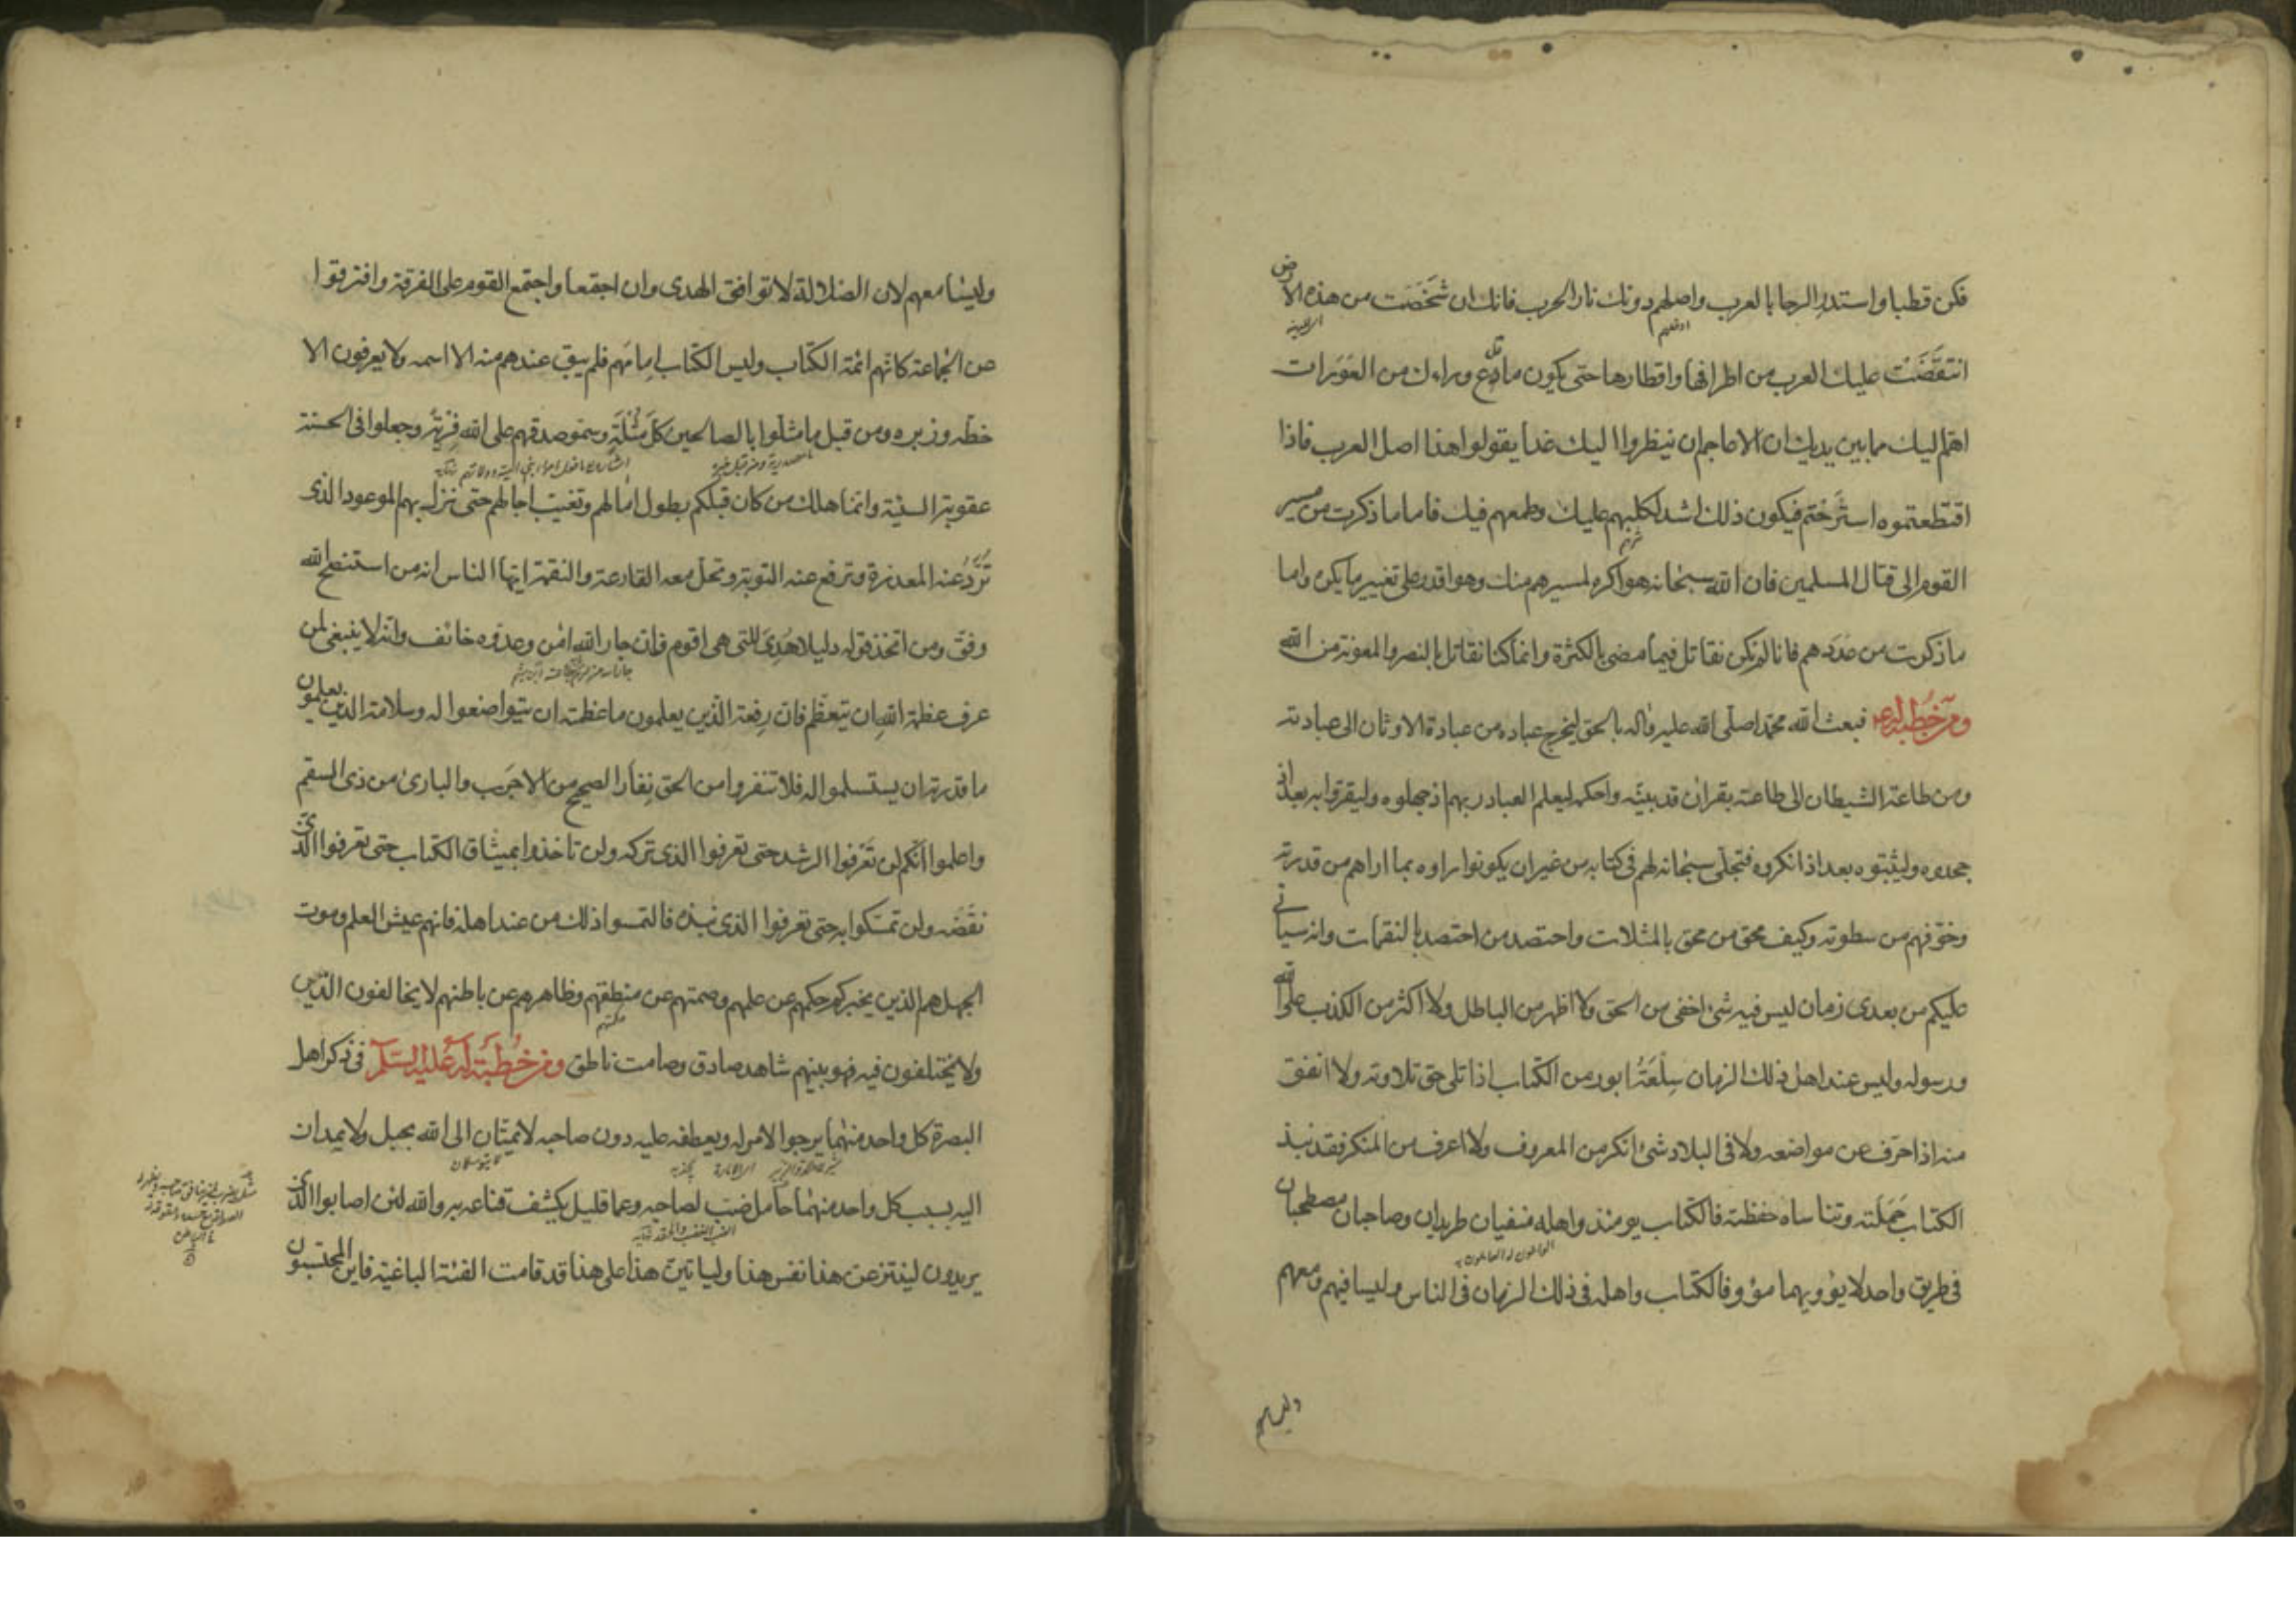 فكن قطبا واستدر الرحا بالعرب واصلهم دونك نار الحرب فانك ان شَخَصَت من هذه الارض
انتقضَت عليك العرب من اطرافها واقطارها حتى يكون ما تدع وراءك من العَوَرات
اهم اليك مما بين يديك ان الاعاجم ان ينظروا اليك غدا يقولوا هذا اصل العرب فاذا
اقتطعتموه استرَحْتم فيكون ذلك اشد لكلبهم عليك وطمعهم فيك فاما ما ذكرت من مسير
القوم الى قتال المسلمين فان الله سبحانه هو اكره لمسيرهم منك وهو اقدر على تغيير ما يكره واما
ما ذكرت من عددهم فانا لم نكن نقاتل فيما مضى بالكثرة وانما كنا نقاتل بالنصر والمعونة من الله
ومن خطبة له ع فبعث الله محمدا صلى الله عليه واله بالحق ليخرج عباده من عبادة الاوثان الى عبادته
ومن طاعة الشيطان الى طاعته بقران قد بينه واحكمه ليعلم العباد ربهم اذ جهلوه وليقروا به بعد اذ
جحدوه وليثبتوه بعد اذ انكروه فتجلى سبحانه لهم فى كتابه من غير ان يكونوا راوه بما اراهم من قدرته
وخوّفهم من سطوته وكيف محق من محق بالمثلات واحتصد من احتصد بالنقمات وانه سياتى
عليكم من بعدى زمان ليس فيه شئ اخفى من الحق ولا اظهر من الباطل ولا اكثر من الكذب على الله
ورسوله وليس عند اهل ذلك الزمان سِلْعَة ابور من الكتاب اذا تلى حق تلاوته ولا انفق
منه اذا حرّف عن مواضعه ولا فى البلاد شئ انكر من المعروف ولا اعرف من المنكر فقد نبذ
الكتاب حَمَلته وتناساه حفظته فالكتاب يومئذ واهله منفيان طريدان وصاحبان مصطحبان
فى طريق واحد لا يؤويهما مؤو فالكتاب واهله فى ذلك الزمان فى الناس وليسا فيهم ومعهم
وليسا معهم
وليسا معهم لان الضلالة لا توافق الهدى وان اجتمعا واجتمع القوم على الفرقة وافترقوا
عن الجماعة كانهم ائمة الكتاب وليس الكتاب امامهم فلم يبق عندهم منه الا اسمه ولا يعرفون الا
خطه وزبره ومن قبل ما مثلوا بالصالحين كل مُثْلَةٍ وسمو صدقهم على الله فِرْيَة وجعلوا فى الحسنة
عقوبة السيئة وانما هلك من كان قبلكم بطول امالهم وتغيب اجالهم حتى نزل بهم الموعود الذى
تُرَدُّ عنه المعذرة وترفع عنه التوبة وتحل معه القارعة والنقمة ايها الناس انه من استنصح الله
وفق ومن اتخذ قوله دليلا هُدِىَ للتى هى اقوم فان جار الله امن وعدوه خائف وانه لا ينبغى لمن
عرف عظمة الله ان يتعظم فان رفعة الذين يعلمون ما عظمته ان يتواضعوا له وسلامة الذين يعلمون
ما قدرته ان يستسلموا له فلا تنفروا من الحق نفار الصحيح من الاجرَب والبارئ من ذى السقم
واعلموا انكم لن تَعْرفوا الرشد حتى تعرفوا الذى تركه ولن تاخذوا بميثاق الكتاب حتى تعرفوا الذى
نقضه ولن تمسّكوا به حتى تعرفوا الذى نبذه فالتمسوا ذلك من عند اهله فانهم عيش العلم وموت
الجهل هم الذين يخبركم حكمهم عن علمهم وصمتهم عن منطقهم وظاهرهم عن باطنهم لا يخالفون الدين
ولا يختلفون فيه فهو بينهم شاهد صادق وصامت ناطق ومن خطبة له عليه السلام فى ذكر اهل
البصرة كل واحد منهما يرجوا الامر له ويعطفه عليه دون صاحبه لا يمتّان الى الله بحبل ولا يمدان
اليه بسبب كل واحد منهما حامل ضب لصاحبه وعما قليل يكشف قناعه به والله لئن اصابوا الذى
يريدون لينتزعن هذا نفس هذا ولياتين هذا على هذا قد قامت الفئة الباغية فاين المحتسبون